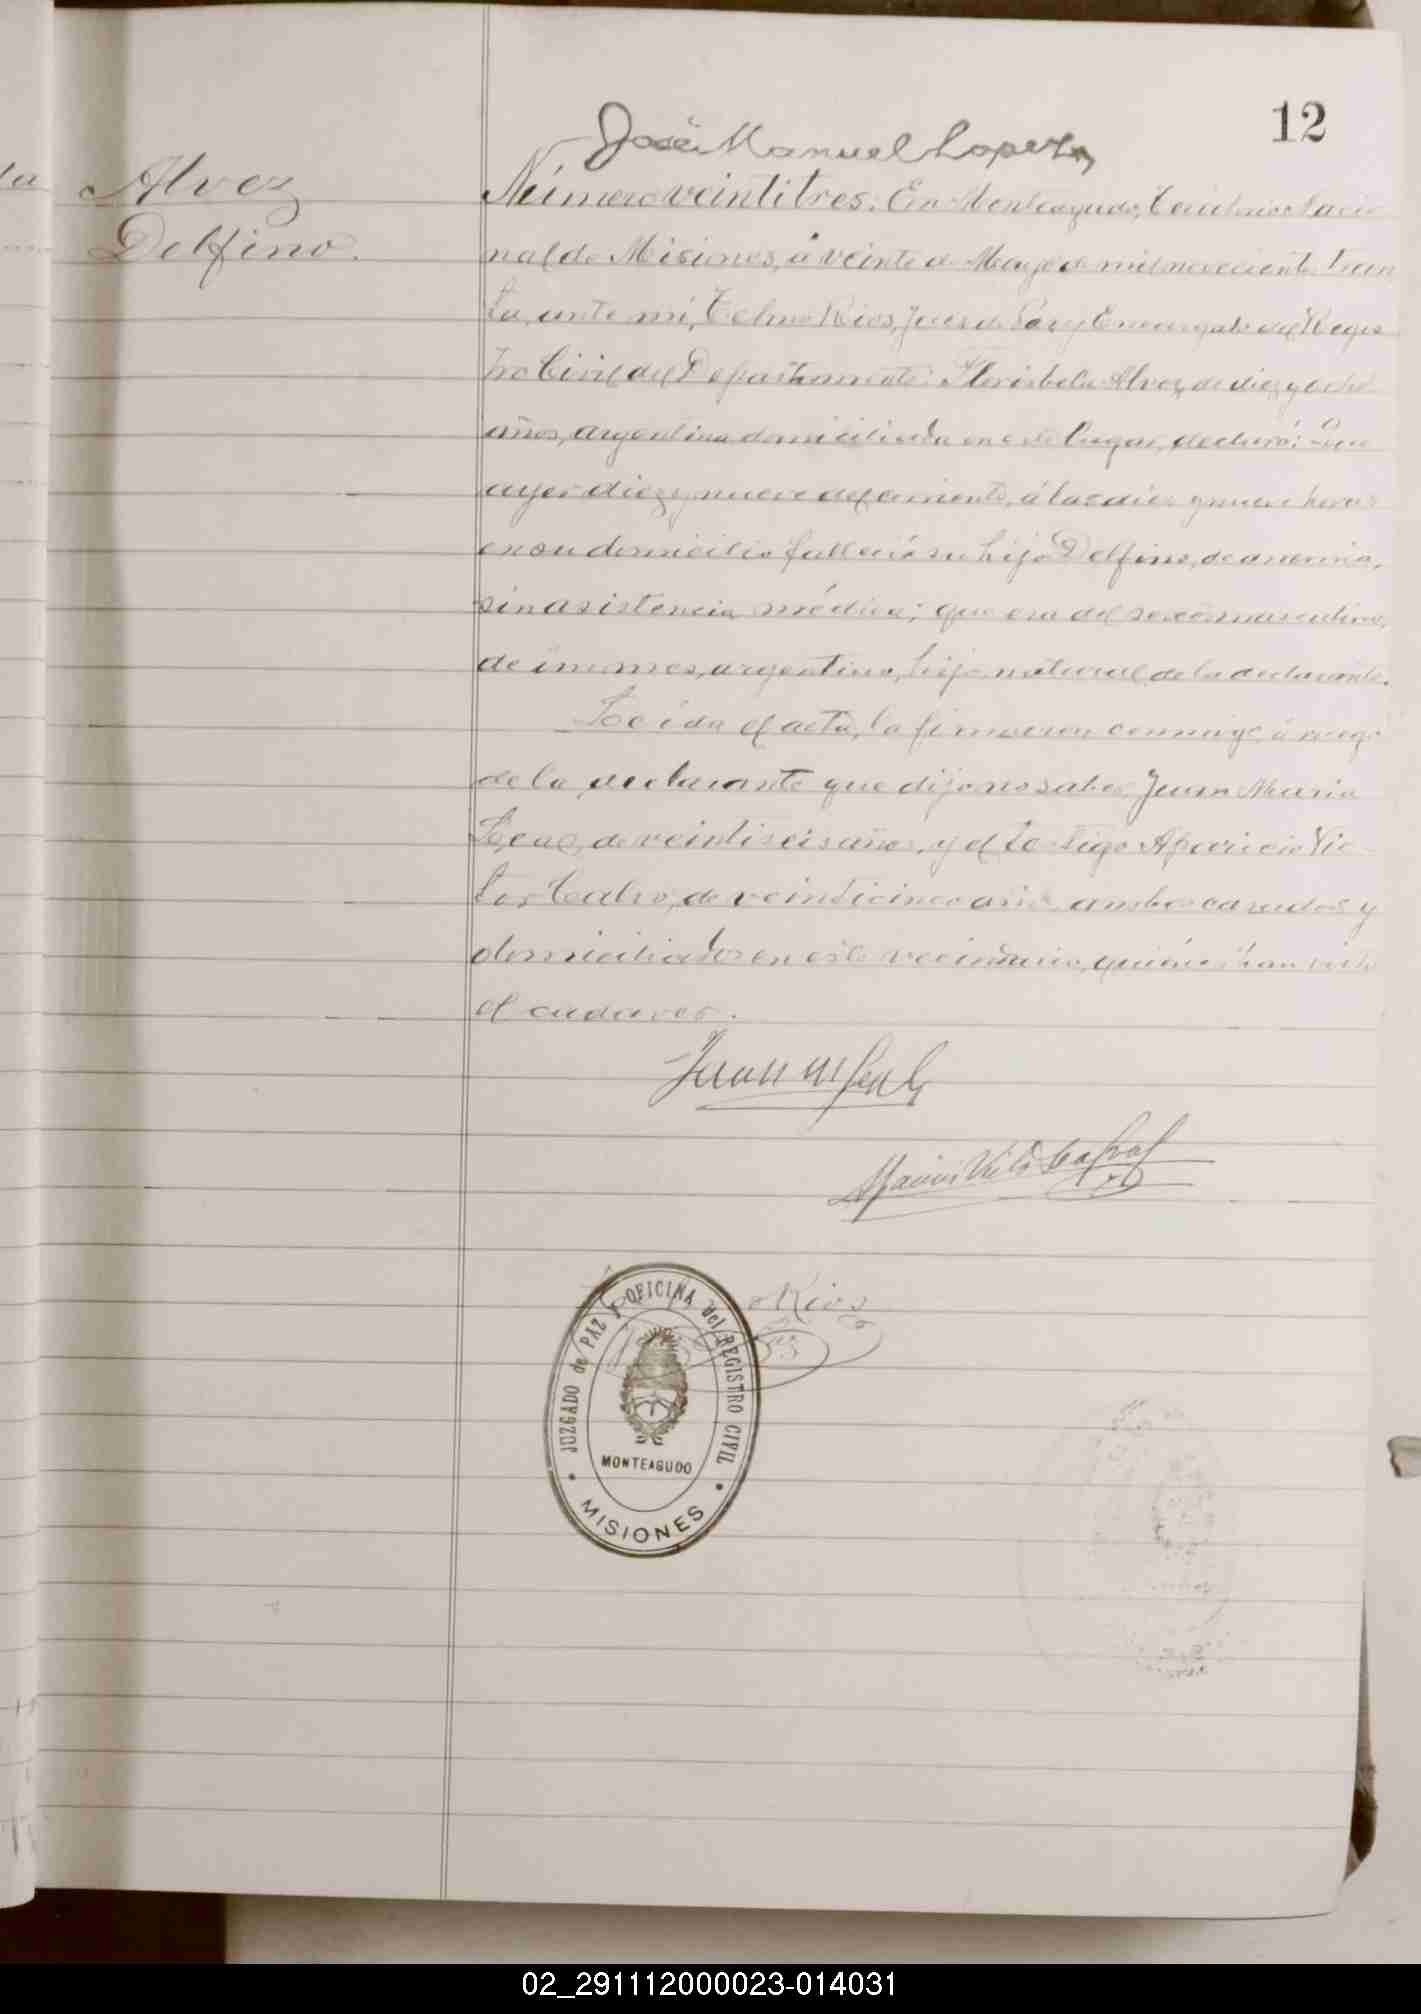 12
José Manuel Lopez
Alvez
Delfino.
Número veintitres: En Monteagudo, Territorio Nacio
nal de Misiones, á veinte de Mayo de mil novecientos trein
ta, ante mí, Telmo Rios, Juez de Paz y Encargado del Regis
tro Civil del Departamento: Florisbela Alvez, de diez y ocho
años, argentina domiciliada en este lugar, declaró: Que
ayer diez y nueve del corriente, á las diez y nueve horas
en su domicilio falleció su hijo Delfino, de anemia,
sin asistencia médica; que era del sexo masculino,
de un mes, argentino, hijo natural de la declarante.
Leida el acta, la firmaron conmigo, á ruego
de la declarante que dijo no saber, Juan Maria
Leal, de veintiseis años, y el testigo Aparicio Vic
tor Cabral, de veinticinco años, ambos casados y
domiciliados en este vecindario, quiénes han visto
el cadaver.
Juan M Leal
Rios
JUZGADO de PAZ Y OFICINA del REGISTRO CIVIL
MONTEAGUDO
MISIONES
02_291112000023-014031